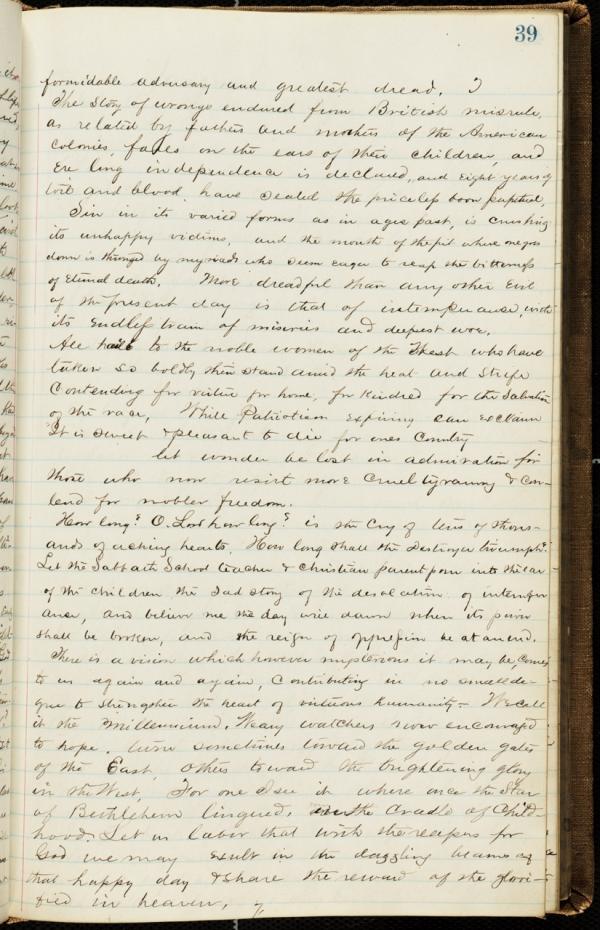 39
formidable adversary and greatest dread.
The Story of wrongs endured from British misrule,
as related by fathers and mothers of the American
Colonies, falls on the ears of their children, and
Ere long independence is declared, and Eight years of
toil and blood have sealed the priceless boon
Sin in its varied forms as in ages past, is crushing
its unhappy victims, and the mouth of the pit where
down is thronged by myriads who seem eager to reap the bitterness
of Eternal death. More dreadful than any other Evil
of the present day is that of intemperance, with
its Endless train of miseries and deepest woe.
All hail to the noble women of the West who have
taken so boldly their stand amid the heat and Strife
Contending for virtue for home, for Kindred for the Salvation
of the race, While Patriotism Expiring can Exclaim
It is Sweet & pleasant to die for ones Country
let wonder be lost in admiration for
those who now resist more Cruel tyranny & con-
tend for nobler freedom.
How long? O. Lord how long? is the Cry of tens of thous-
ands of aching hearts. How long shall the Destroyer triumph?
Let the Sabbath School teacher & Christian parent pour into the ear
of the children the Sad story of the desolation of intemper
ance, and believe me the day will dawn when its power
shall be broken, and the reign of oppression be at an end.
There is a vision which however mysterious it may be, Comes
to us again and again, Contributing in no small de-
gree to strengthen the heart of virtuous humanity - We call
it the Millennium. Weary watchers now encouraged
to hope, turn sometimes toward the golden gates
of the East, others toward the brightening glory
in the West, For one I see it where once the Star
of Bethlehem lingered, the Cradle of Child-
hood. Let us labor that with the reapers for
God we may Exult in the dazzling beams of
that happy day & share the reward of the glori-
fied in heaven.